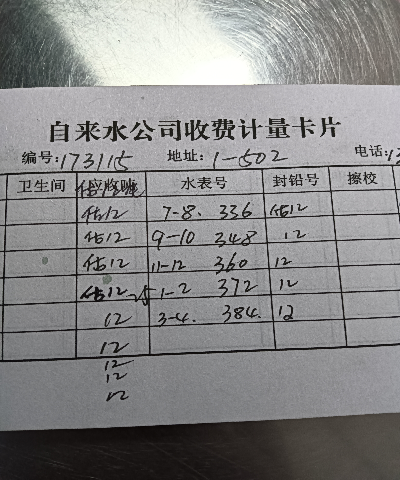 自来水公司收费计量卡片
编号:173115 地址:1-502 电话:13
卫生间 应收吨 水表号 封铅号 擦校
估12 7-8. 336 估12
估12 9-10 348 12
估12 11-12 360 12
估12 25 1-2 372 12
12 3-4. 384. 12
12
12
12
12